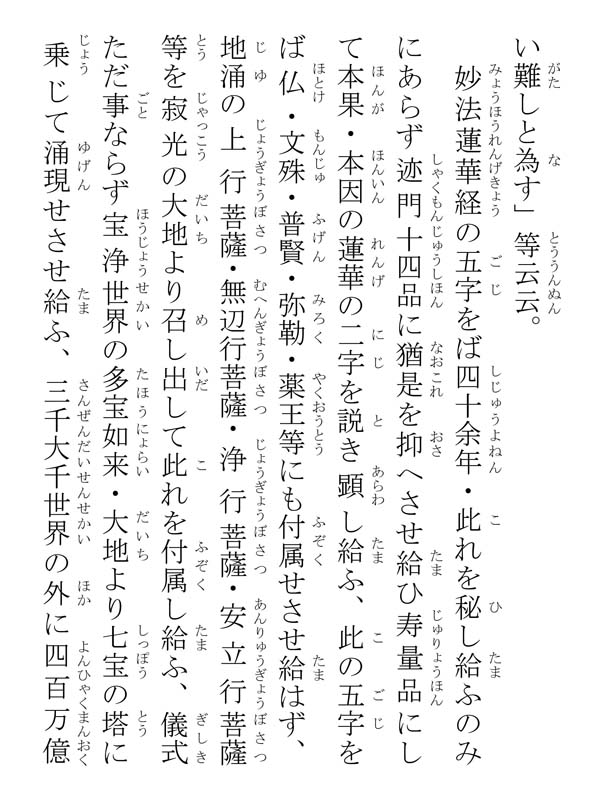 い難しと為す」等云云。
妙法蓮華経の五字をば四十余年・此れを秘し給ふのみ
にあらず迹門十四品に猶是を抑へさせ給ひ寿量品にし
て本果・本因の蓮華の二字を説き顕し給ふ、此の五字を
ば仏・文殊・普賢・弥勒・薬王等にも付属せさせ給はず、
地涌の上行菩薩・無辺行菩薩・浄行菩薩・安立行菩薩
等を寂光の大地より召し出して此れを付属し給ふ、儀式
ただ事ならず宝浄世界の多宝如来・大地より七宝の塔に
乗じて涌現せさせ給ふ、三千大千世界の外に四百万億